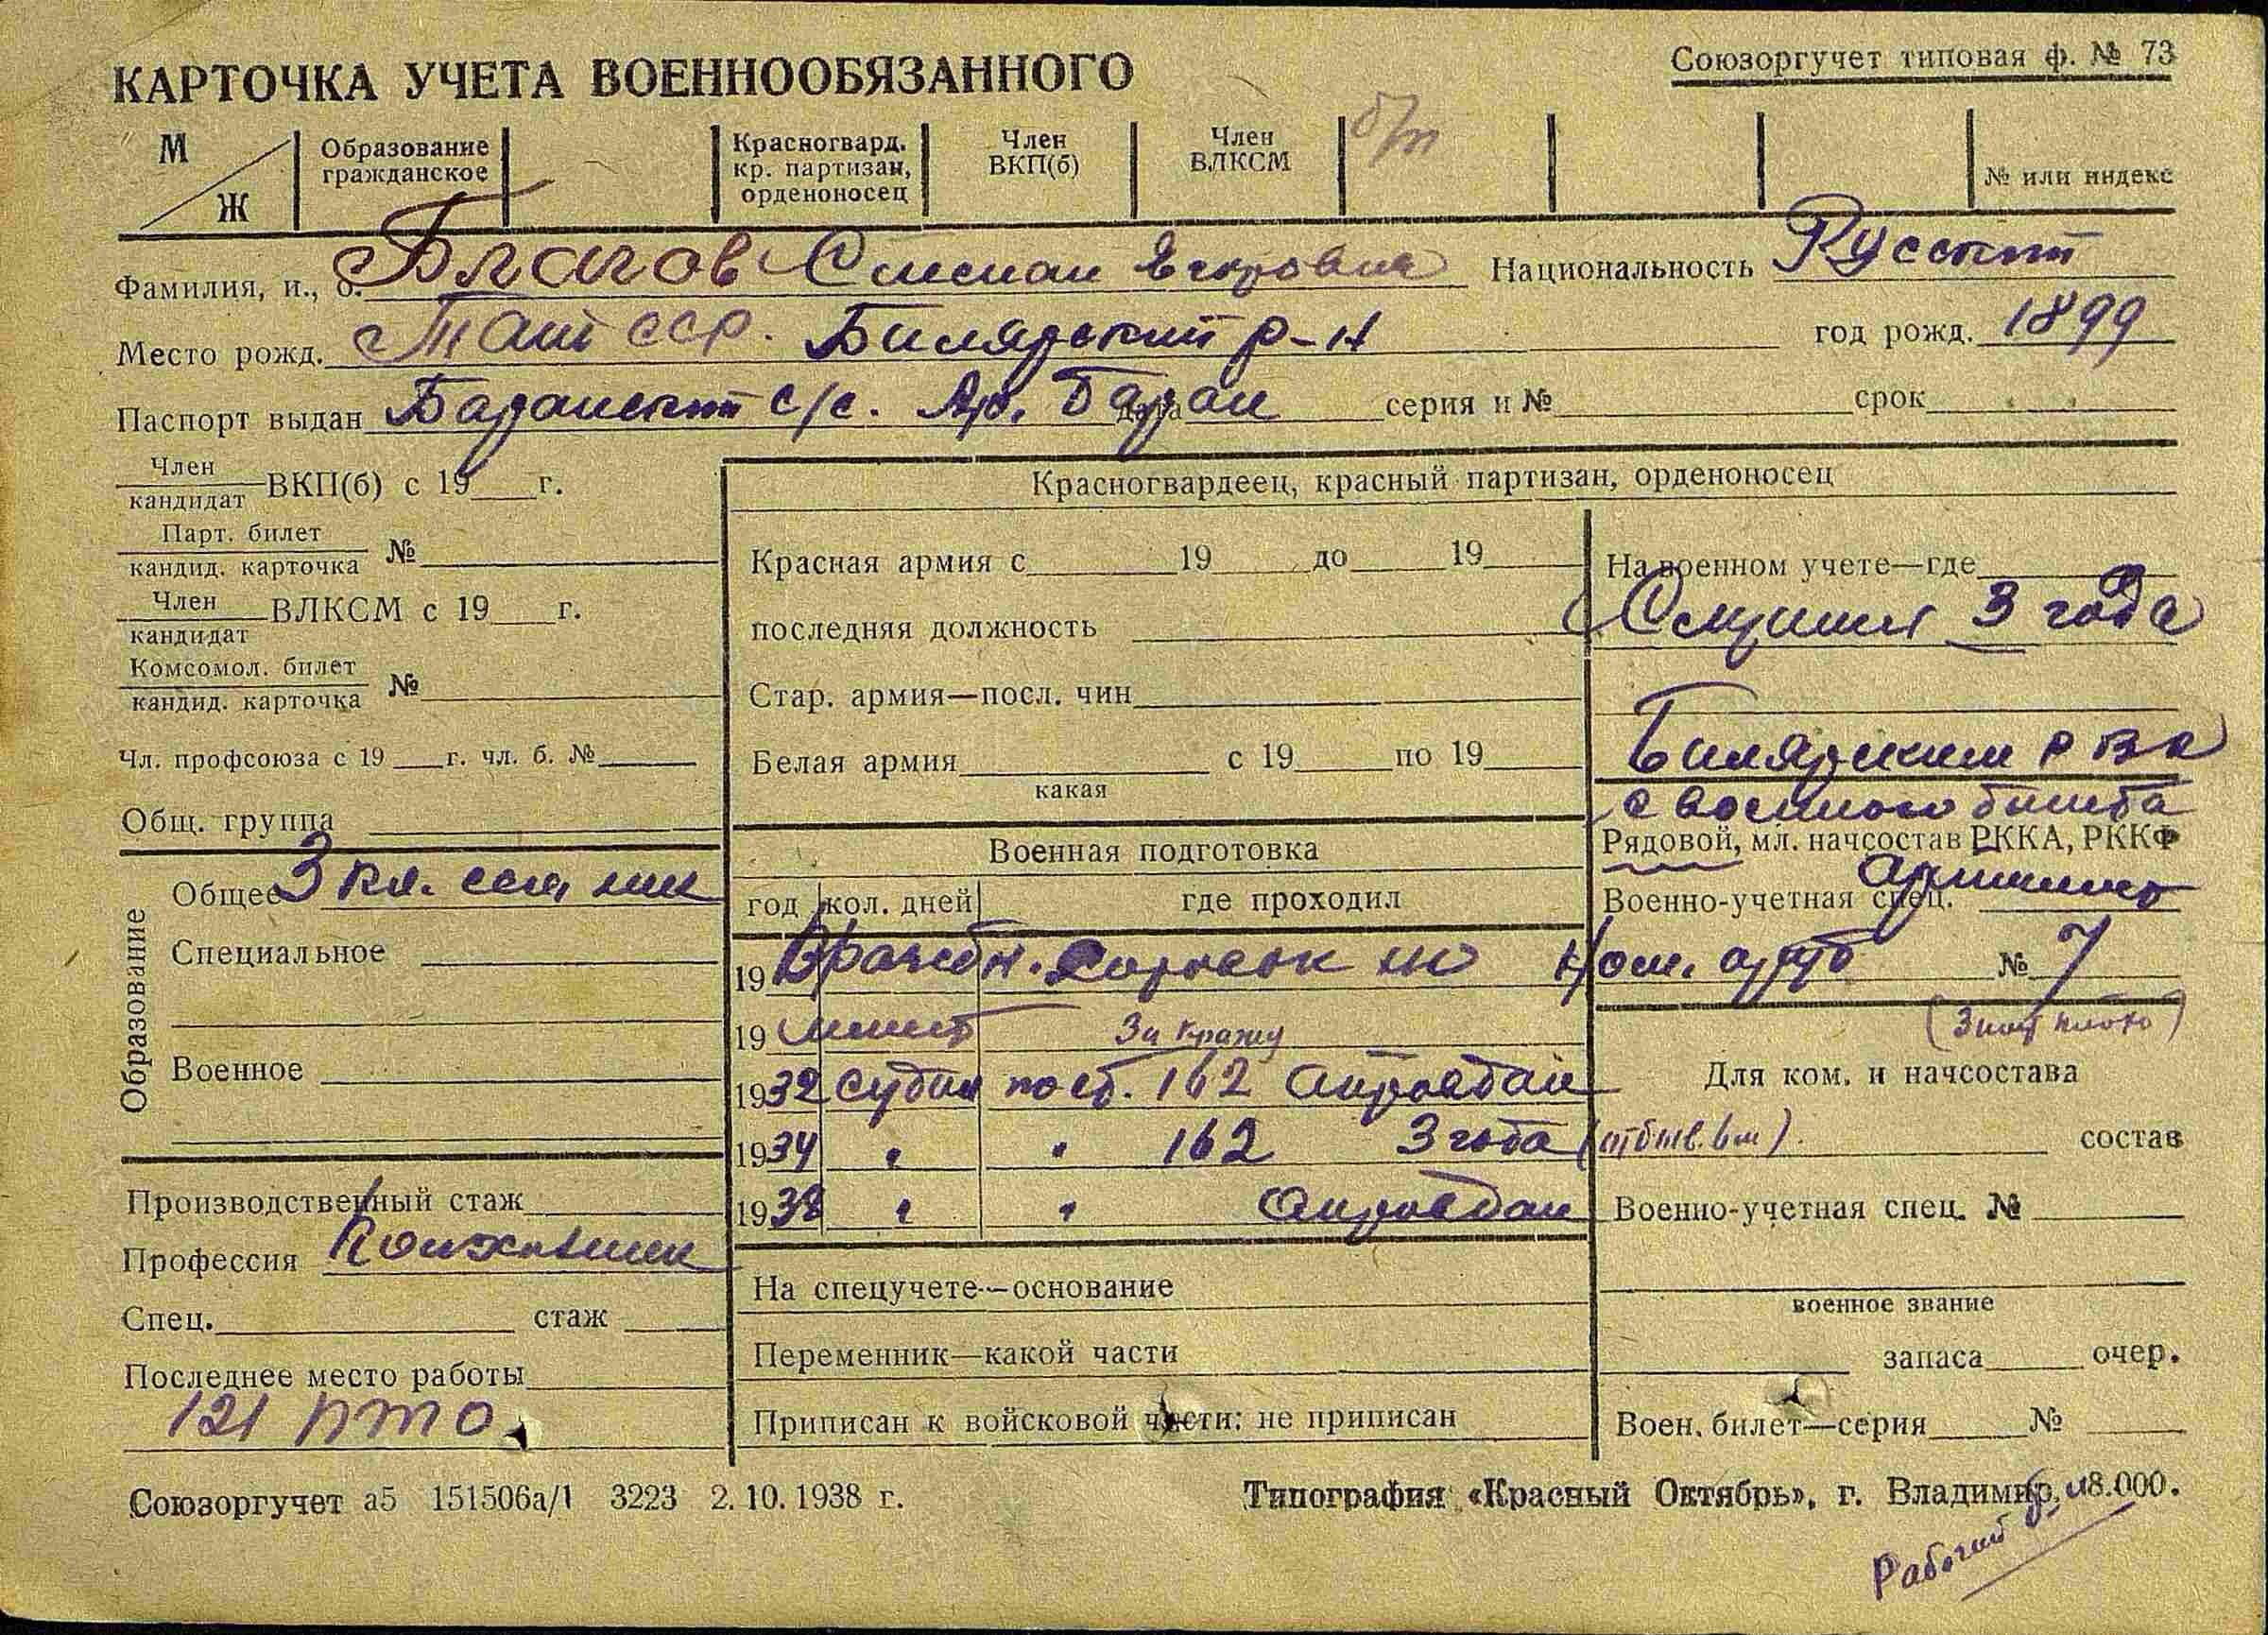 КАРТОЧКА УЧЕТА ВОЕННООБЯЗАННОГО
Союзоргучет типовая ф. № 73
М
Ж
Образование гражданское
Красногвард. кр. партизан, орденоносец
Член ВКП(б)
Член ВЛКСМ
б/п
№ или индекс
Фамилия, и., о. Благов Семен Егорович Национальность Русский
Место рожд. Тат ССР. Билярский р-н год рожд. 1899
Паспорт выдан Баранский с/с. дата Баран серия и № срок
Член
кандидат ВКП(б) с 19 г.
Парт. билет
кандид. карточка №
Член
кандидат ВЛКСМ с 19 г.
Комсомол. билет
кандид. карточка №
Чл. профсоюза с 19 г. чл. б. №
Общ. группа
Образование
Общее 3 кл.
Специальное
Военное
Производственный стаж
Профессия
Спец. стаж
Последнее место работы
121 ПТО
Красногвардеец, красный партизан, орденоносец
Красная армия с 19 до 19
последняя должность
Стар. армия—посл. чин
Белая армия с 19 по 19
какая
Военная подготовка
год кол. дней где проходил
19
19 За кражу
1932 судим по ст. 162 оправдан
1934 " " 162 3 года
1938 " " оправдан
На спецучете—основание
Переменник—какой части
Приписан к войсковой части: не приписан
На военном учете—где
3 года
Билярским РВК
с военного билета
Рядовой, мл. начсостав РККА, РККФ
Военно-учетная спец.
№ 7
Для ком. и начсостава
состав
Военно-учетная спец. №
военное звание
запаса очер.
Воен. билет—серия №
Союзоргучет а5 151506а/1 3223 2.10.1938 г.
Типография «Красный Октябрь», г. Владимир, 18.000.
Рабочий